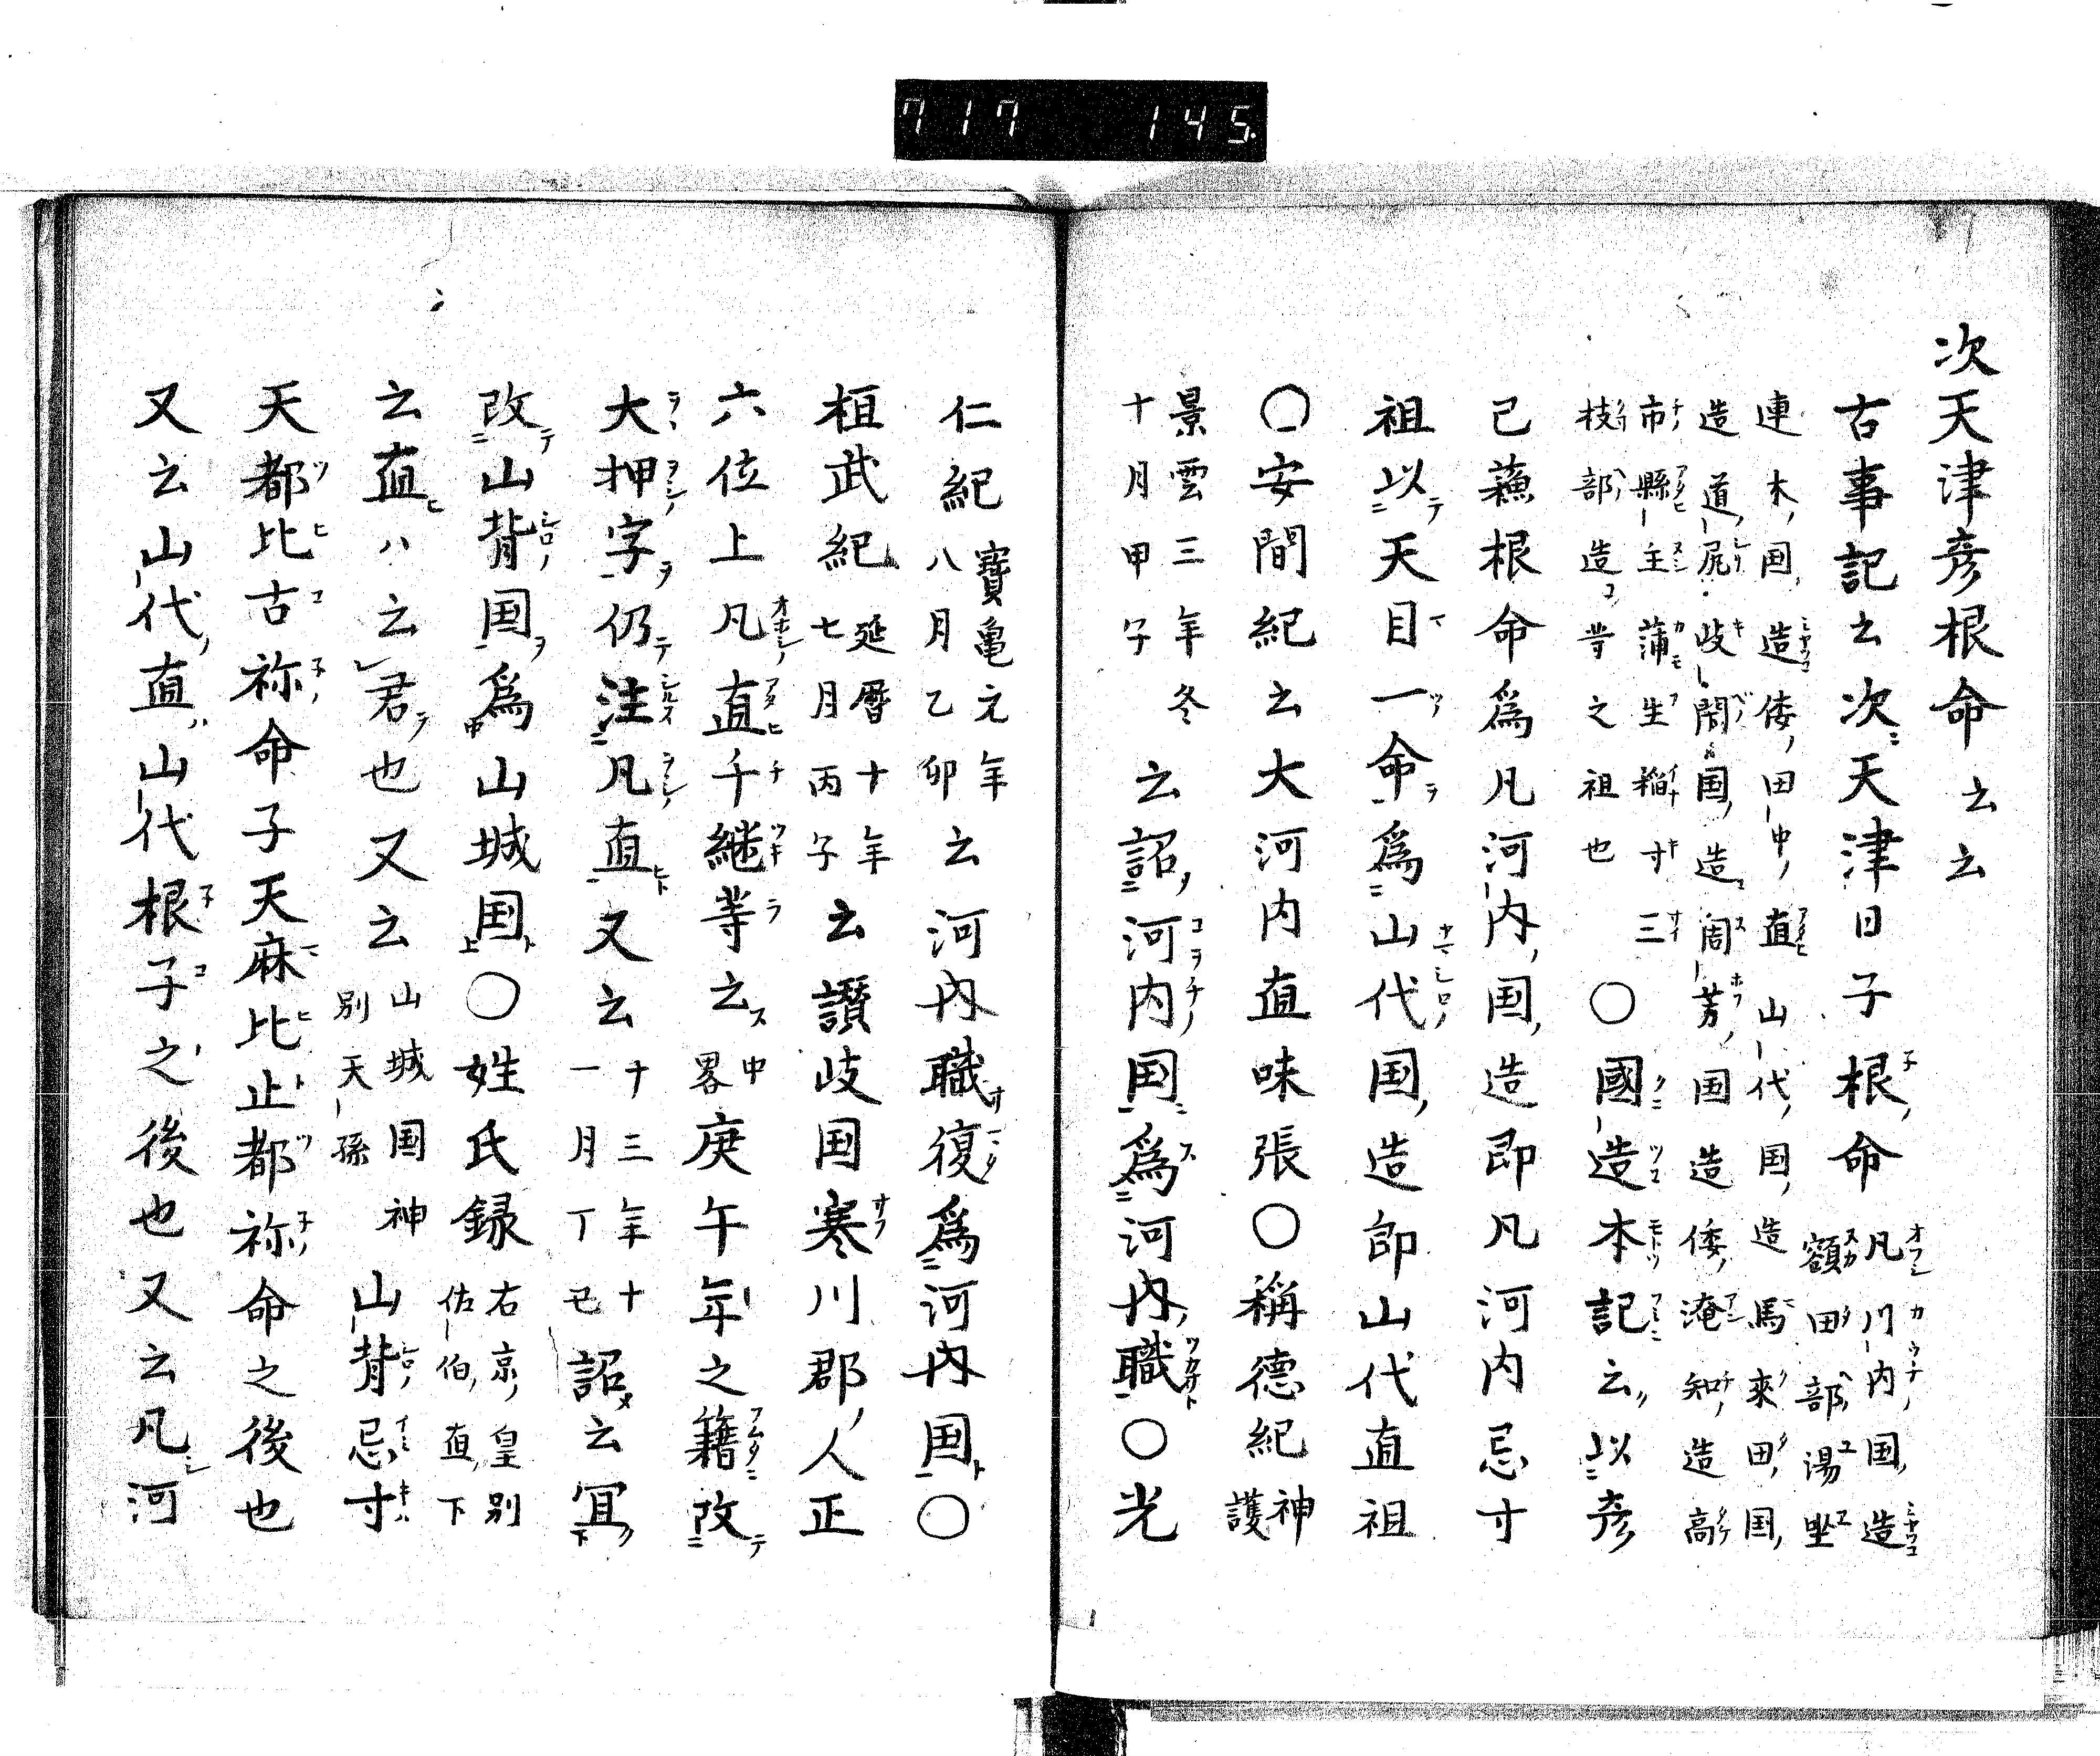 717 145
次天津彦根命云云
古事記云次天津日子根命 凡川内国造
額田部湯坐
連木国造倭田中直山代国造馬來田国
造道尻岐閇国造周芳国造倭淹知造高
市縣主蒲生稲寸三
枝部造等之祖也
○國造本記云以彦
己蘓根命為凡河内国造即凡河内忌寸
祖以天目一命為山代国造即山代直祖
○安閒紀云大河内直味張○稱徳紀神護
景雲三年冬
十月甲子
云詔河内国為河内職○光
仁紀寶亀元年
八月乙卯
云河内職復為河内国○
桓武紀延暦十年
七月丙子
云讃岐国寒川郡人正
六位上凡直千継等云中畧庚午年之籍改
大押字仍注凡直又云十三年十
一月丁巳
詔云冝
改山背国為山城国○姓氏録右京皇別
佐伯直下
云直ハ云君也又云山城国神
別天孫
山背忌寸
天都比古祢命子天麻比止都祢命之後也
又云山代直山代根子之後也又云凡河